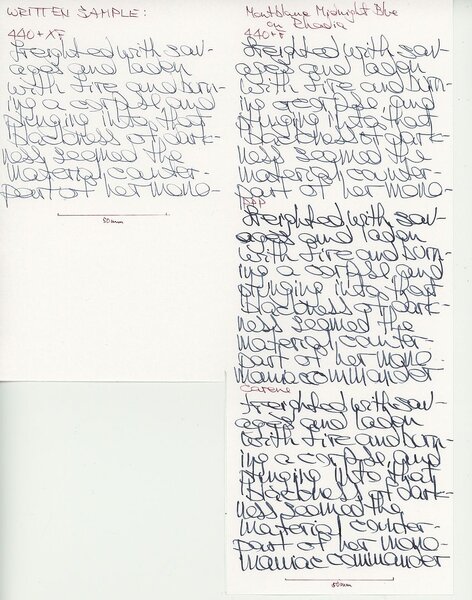 WRITTEN SAMPLE:
440+XF
freighted with sav-
ages and laden
with fire and burn-
ing a corpse and
plunging into that
blackness of dark-
ness seemed the
material counter-
part of her mono-
50mm
Montblanc Midnight Blue
on Rhodia
440+F
freighted with sav-
ages and laden
with fire and burn-
ing a corpse, and
plunging into that
blackness of dark-
ness seemed the
material counter-
part of her mono-
freighted with sav-
ages and laden
with fire and burn-
ing a corpse, and
plunging into that
blackness of dark-
ness seemed the
material counter-
part of her mono-
maniac commander
Carene
freighted with sav-
ages and laden
with fire and burn-
ing a corpse, and
plunging into that
blackness of dark-
ness seemed the
material counter-
part of her mono-
maniac commander
50mm